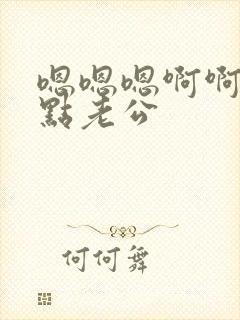 嗯嗯嗯啊啊
點老公
何何舞